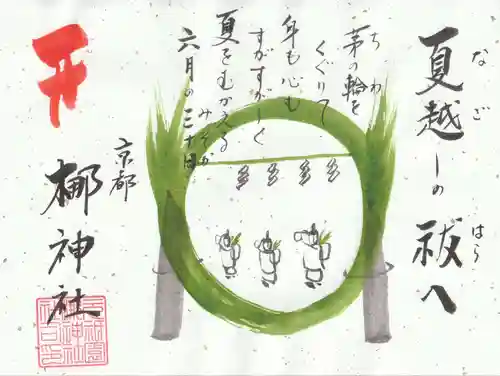 夏越しの祓へ
なご
はら
茅の輪を
ちわ
くぐりて
身も心も
すがすがしく
夏をむかえる
六月の三十日
みそか
京都
梛神社